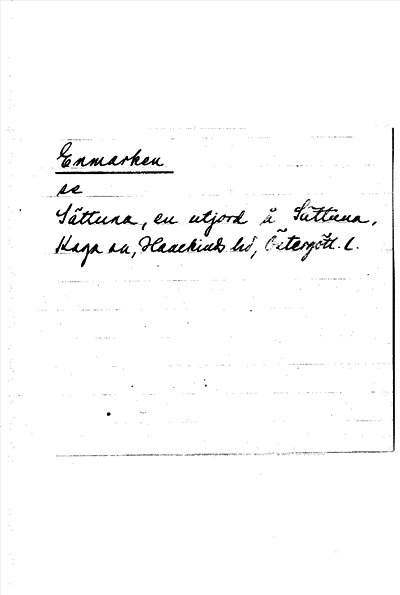 Enmarken
se
Sättuna, en utjord å Sättuna,
Kaga sn, Hanekinds hd, Östergötl. l.